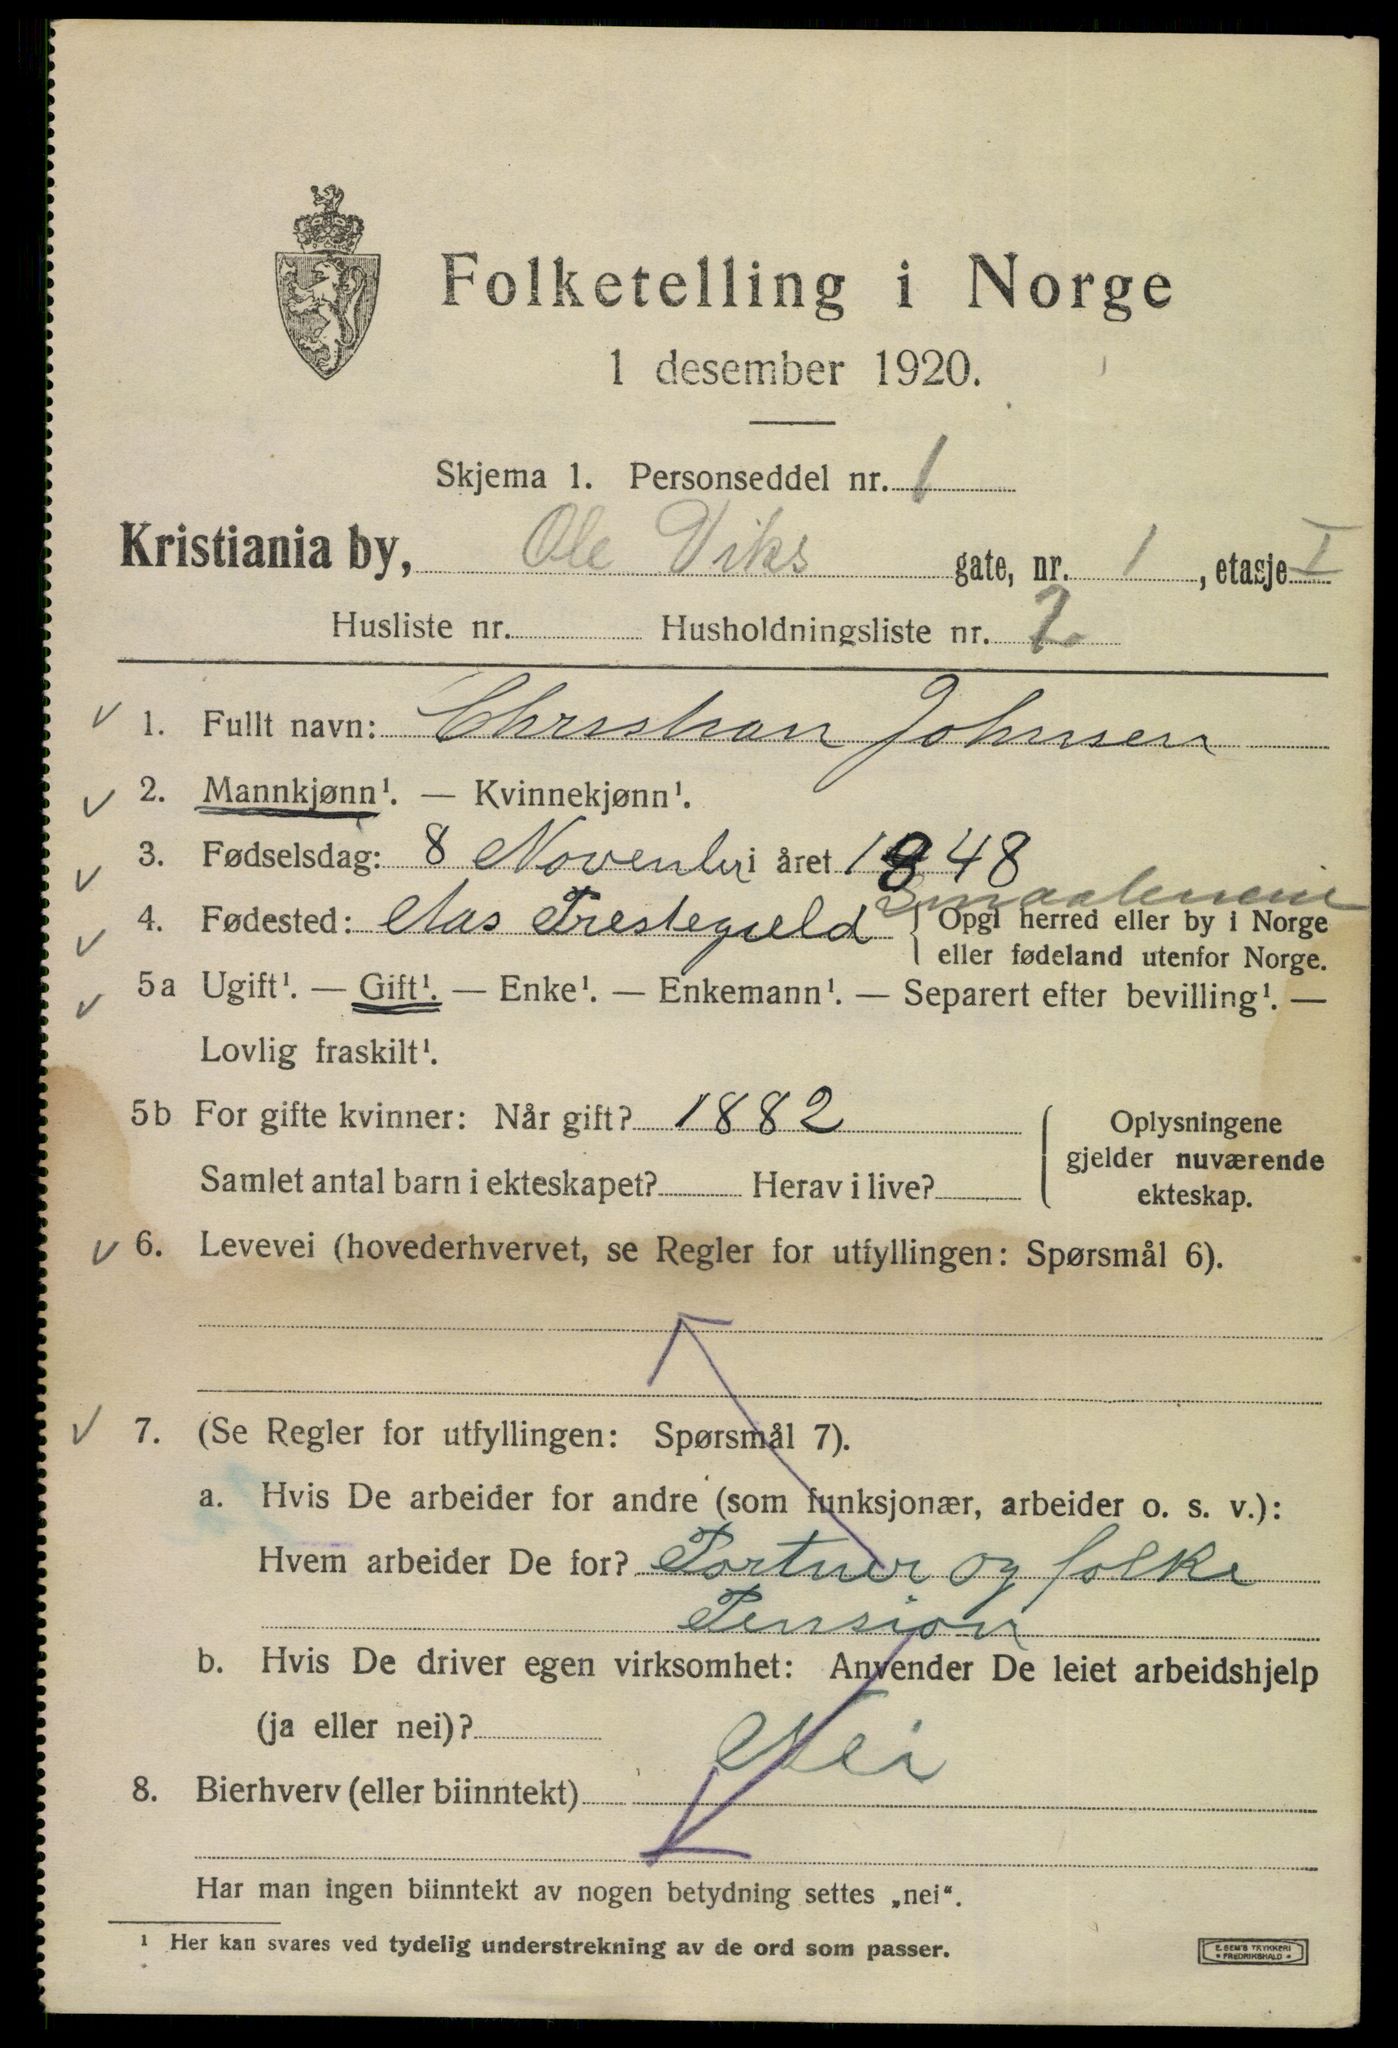 Folketelling i Norge
1 desember 1920.
Skjema 1. Personseddel nr. 1
Kristiania by, Ole Viks gate, nr. 1, etasje I
Husliste nr. Husholdningsliste nr. 2
1. Fullt navn: Christian Johnsen
2. Mannkjønn¹. — Kvinnekjønn¹.
3. Fødselsdag: 8 November i året 1848
Smaalenene
4. Fødested: Aas Prestegield { Opgi herred eller by i Norge
eller fødeland utenfor Norge.
5a Ugift¹. — Gift¹. — Enke¹. — Enkemann¹. — Separert efter bevilling¹. —
Lovlig fraskilt¹.
5b For gifte kvinner: Når gift? 1882
Samlet antal barn i ekteskapet? Herav i live?
Oplysningene
gjelder nuværende
ekteskap.
6. Levevei (hovederhvervet, se Regler for utfyllingen: Spørsmål 6).
7. (Se Regler for utfyllingen: Spørsmål 7).
a. Hvis De arbeider for andre (som funksjonær, arbeider o. s. v.):
Hvem arbeider De for? Portner og folke
Pension
b. Hvis De driver egen virksomhet: Anvender De leiet arbeidshjelp
(ja eller nei)?
Nei
8. Bierhverv (eller biinntekt)
Har man ingen biinntekt av nogen betydning settes „nei“.
¹ Her kan svares ved tydelig understrekning av de ord som passer.
E. SEM'S TRYKKERI
• FREDRIKSHALD •